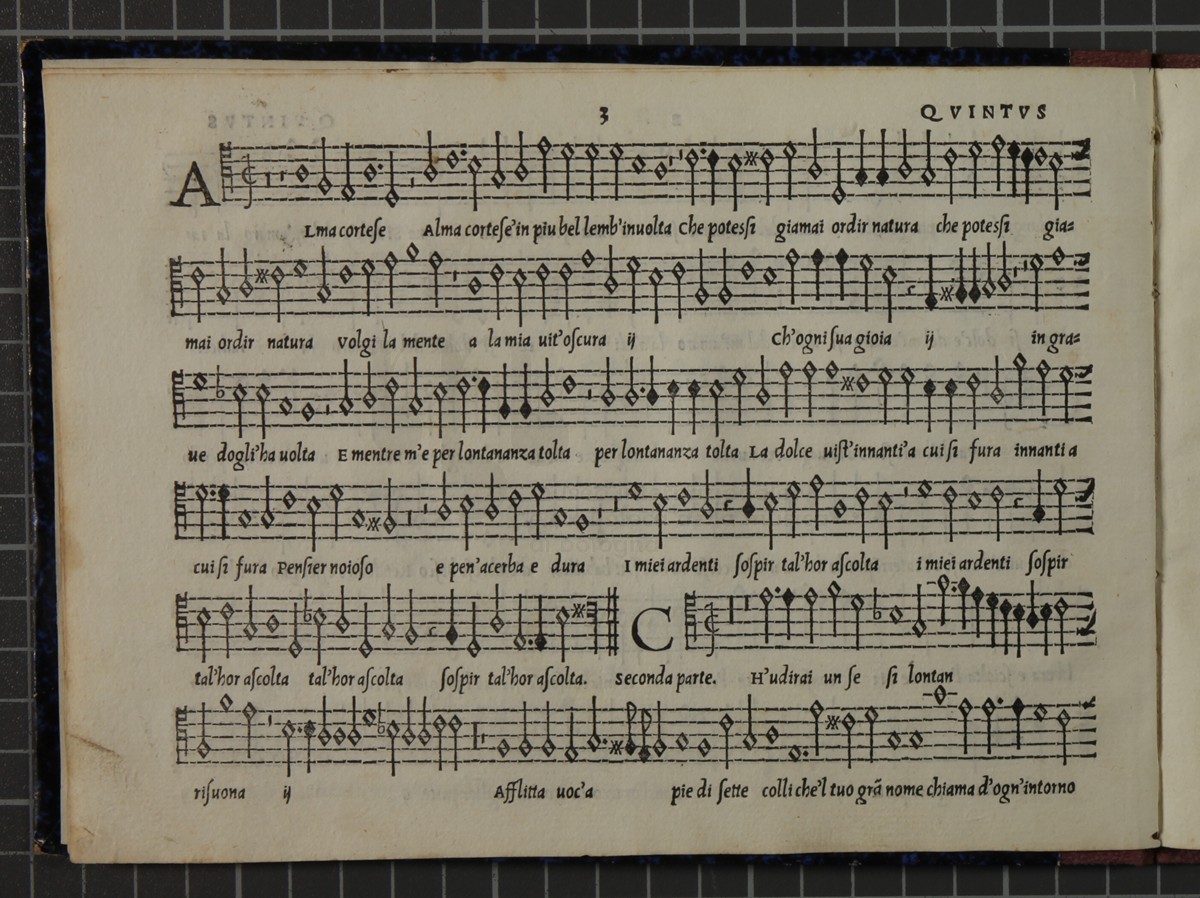 3 QVINTVS
A Lma cortese Alma cortese'in piu bel lemb'inuolta Che potessi giamai ordir natura che potessi gia=
mai ordir natura volgi la mente a la mia uit'oscura ij Ch'ogni sua gioia ij in gra=
ue dogli'ha uolta E mentre m'e per lontananza tolta per lontananza tolta La dolce uist'innanti'a cui si fura innanti a
cui si fura Pensier noioso e pen'acerba e dura I miei ardenti sospir tal'hor ascolta i miei ardenti sospir
C
tal'hor ascolta tal'hor ascolta sospir tal'hor ascolta. Seconda parte. H'udirai un se si lontan
risuona ij Afflitta uoc'a pie di sette colli che'l tuo grã nome chiama d'ogn'intorno